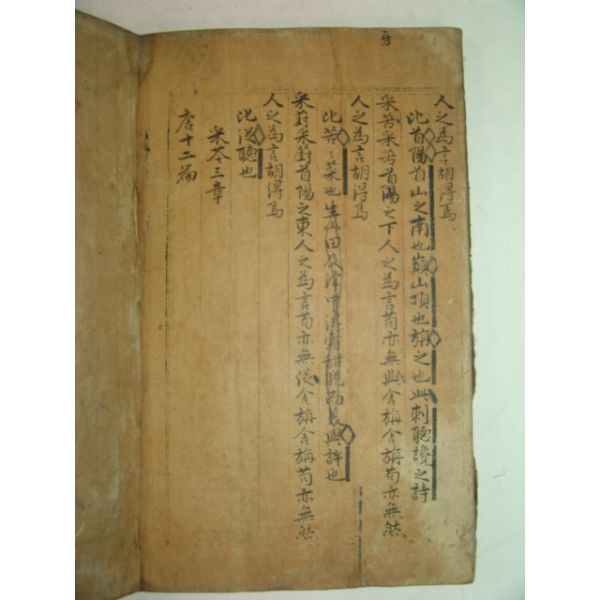 人之為言胡得焉
比首陽首山之南也巔山頂也旃之也此刺聽讒之詩
采苦采苦首陽之下人之為言苟亦無與舍旃舍旃苟亦無然
人之為言胡得焉
比苦苦菜也生山田及澤中得霜甜脆而美與許也
采葑采葑首陽之東人之為言苟亦無從舍旃舍旃苟亦無然
人之為言胡得焉
比從聽也
采苓三章
唐十二篇